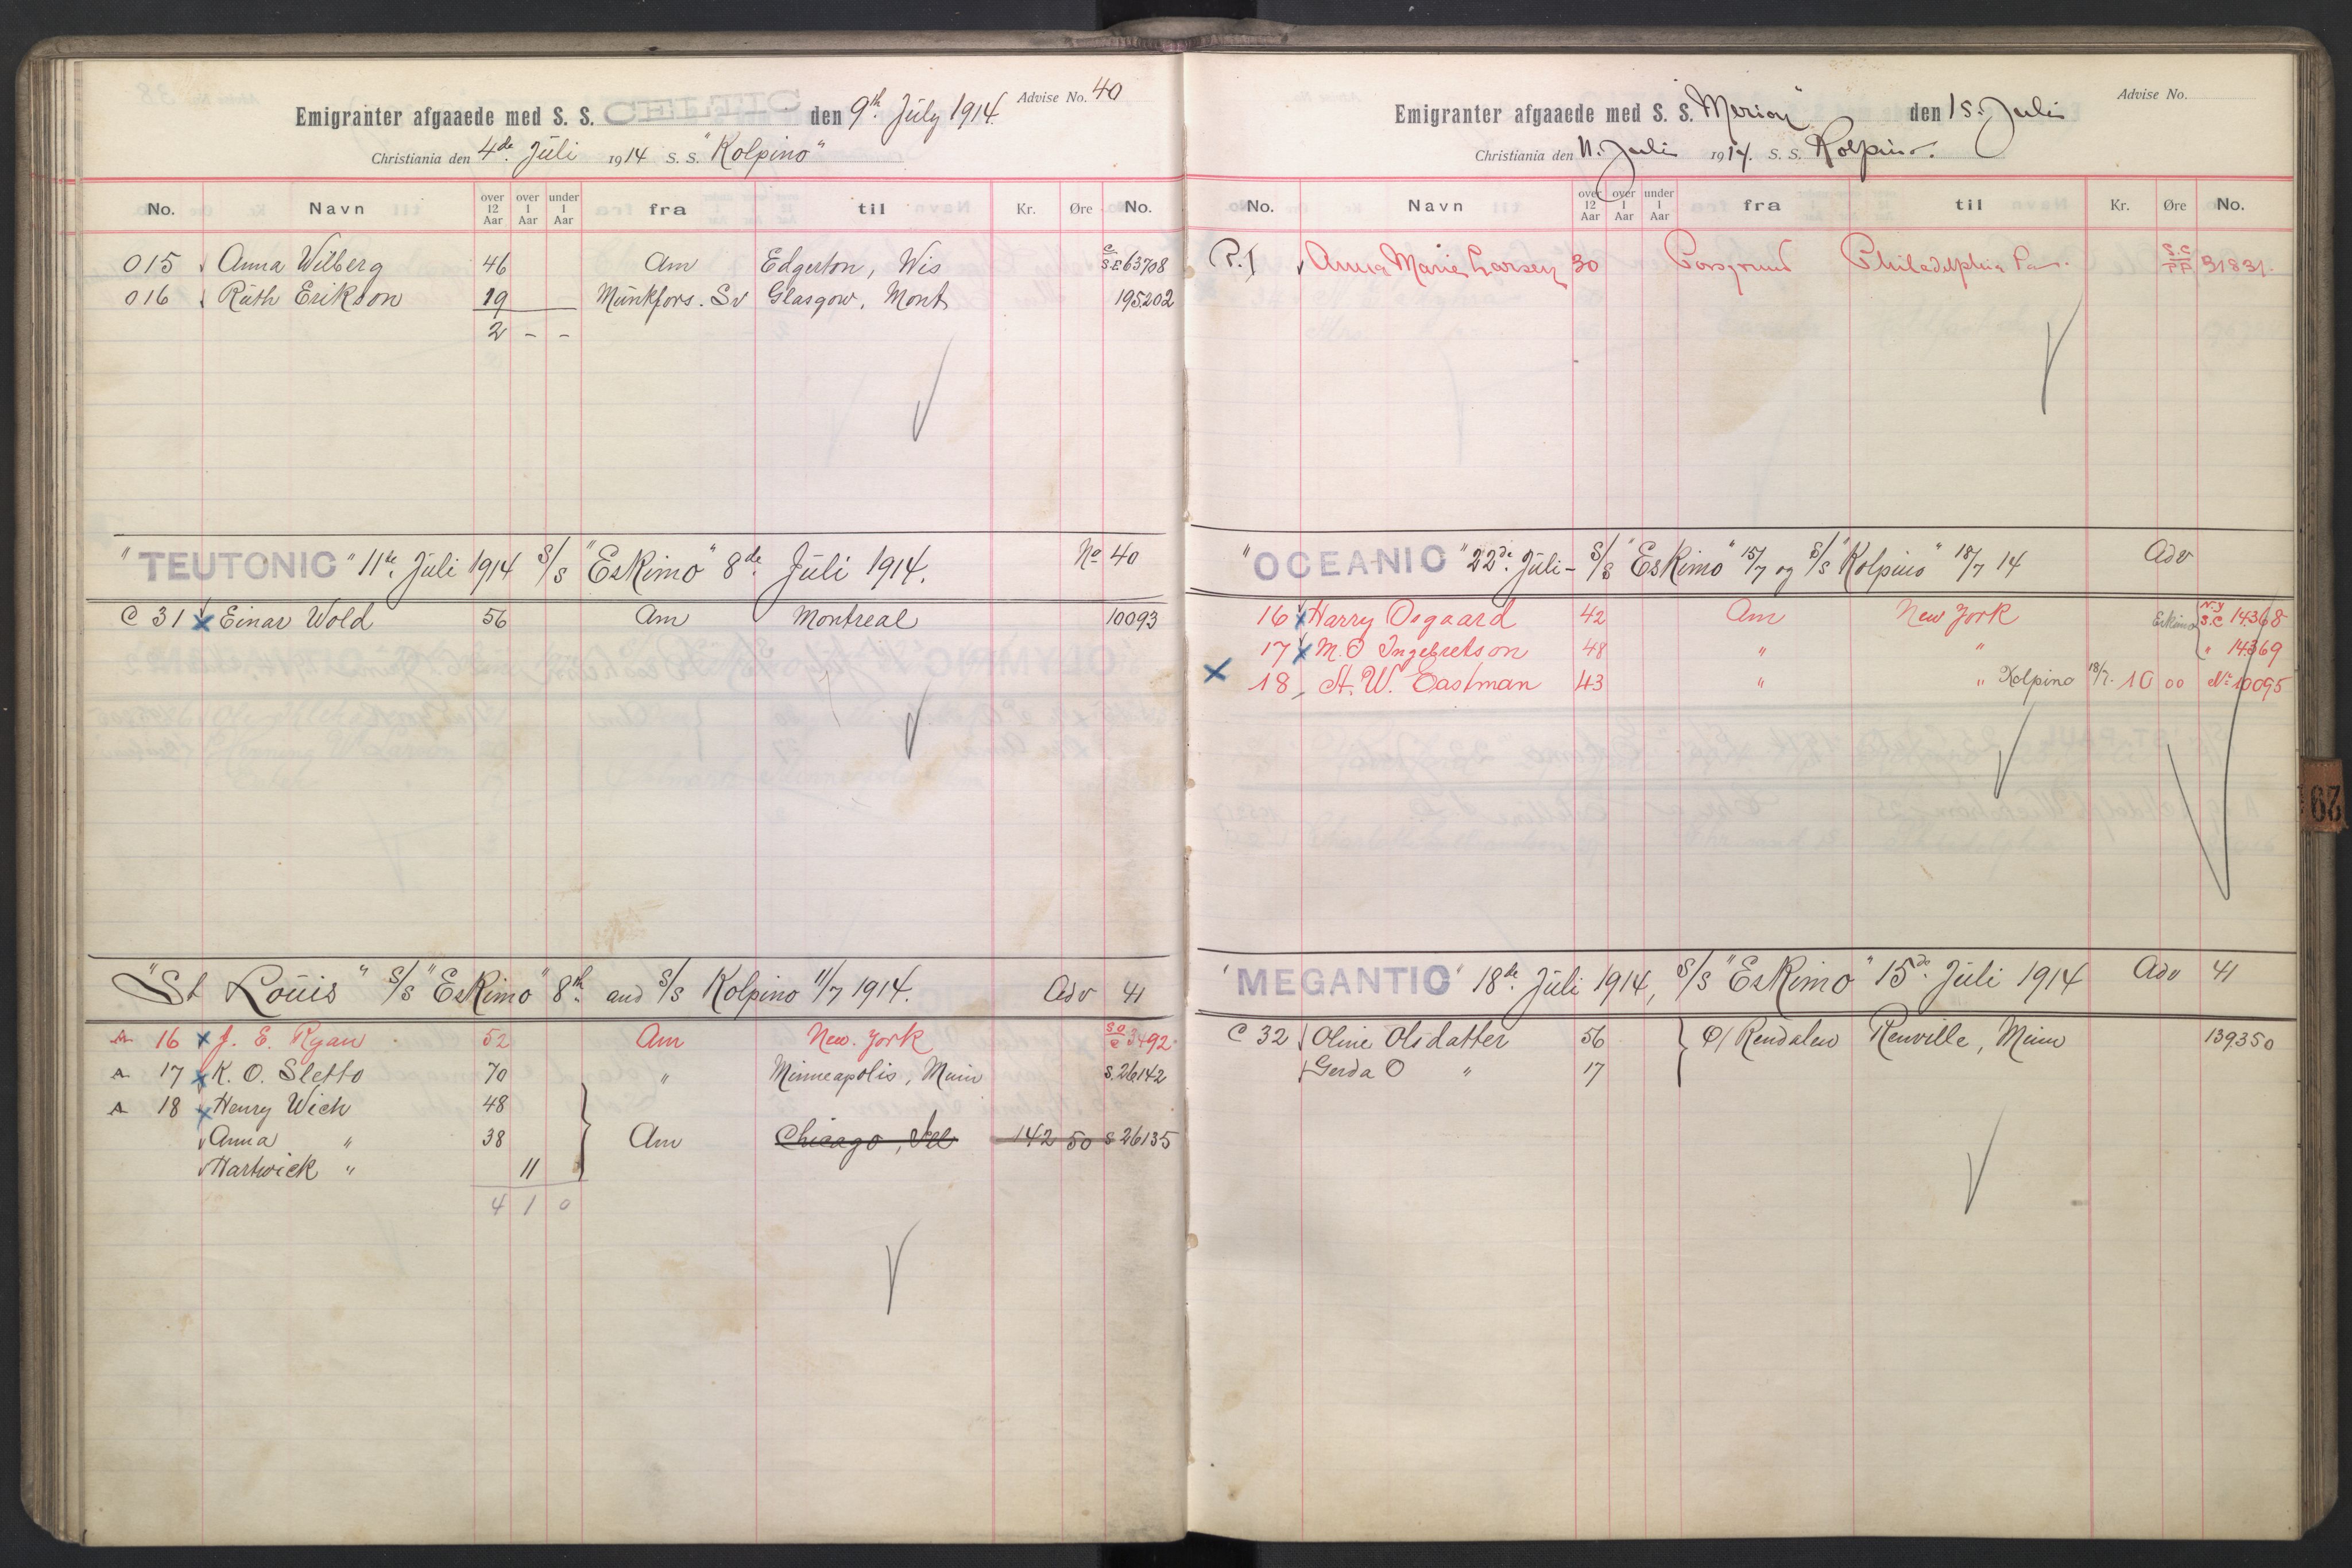 Advise No. 40
Emigranter afgaaede med S. S. CELTIC den 9th July 1914.
Christiania den 4de Juli 1914 S. S. "Kolpino"
No. Navn over 12 Aar over 1 Aar under 1 Aar fra til Kr. Øre No.
015 Anna Wilberg 46 Am Edgerton, Wis C/S.E 63708
016 Ruth Erikson 19 Munkfors. Sv Glasgow, Mont 195202
2 - -
"TEUTONIC" 11te Juli 1914 S/s "Eskimo" 8de Juli 1914. No 40
C 31 x Einar Wold 56 Am Montreal 10093
"St Louis" S/s "Eskimo" 8th and S/s Kolpino 11/7 1914. Adv 41
A 16 x J. E. Ryan 52 Am New. York 3492
A 17 x K. O. Sletto 70 " Minneapolis, Minn S. 26142
A 18 x Henry Wich 48
Anna " 38 Am Chicago, Ill 142 50 S 26135
Hartwick " 11
4 1 0
Advise No.
Emigranter afgaaede med S. S. "Merion" den 15. Juli
Christiania den 11. Juli 1914. S. S. Kolpino.
No. Navn over 12 Aar over 1 Aar under 1 Aar fra til Kr. Øre No.
P. 1 Anna Marie Larsen 30 Porsgrund Philadelphia Pa. S.C/P.P 31831.
"OCEANIC" 22de Juli - S/s "Eskimo" 15/7 og S/s "Kolpino" 18/7 14 Adv
16 x Harry Osgaard 42 Am New York Eskimo N.Y S.C 14368
17 x M. O Ingebretson 48 " " " 14369
x 18 A. W. Eastman 43 " " Kolpino 18/7. 10 00 No 10095
"MEGANTIC" 18de Juli 1914, S/s "Eskimo" 15de Juli 1914 Adv 41
C 32 Oline Olsdatter 56 Ø/ Rendalen Renville, Minn 139350
Gerda O " 17
29